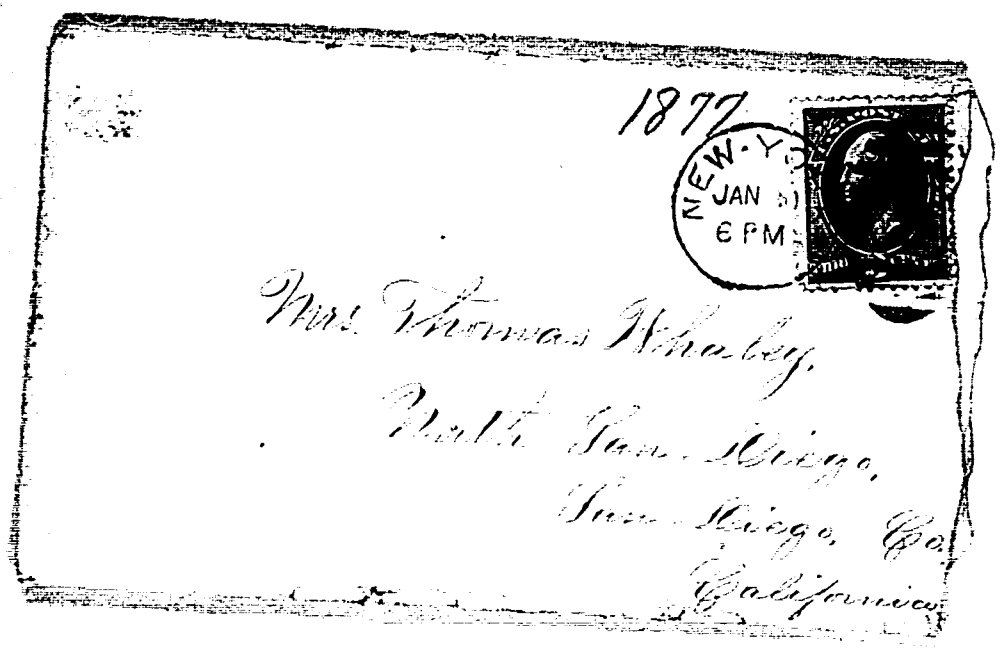 1877
NEW-YO
JAN
6 PM
Mrs. Thomas Whaley,
North San Diego,
San Diego, Co.
California.